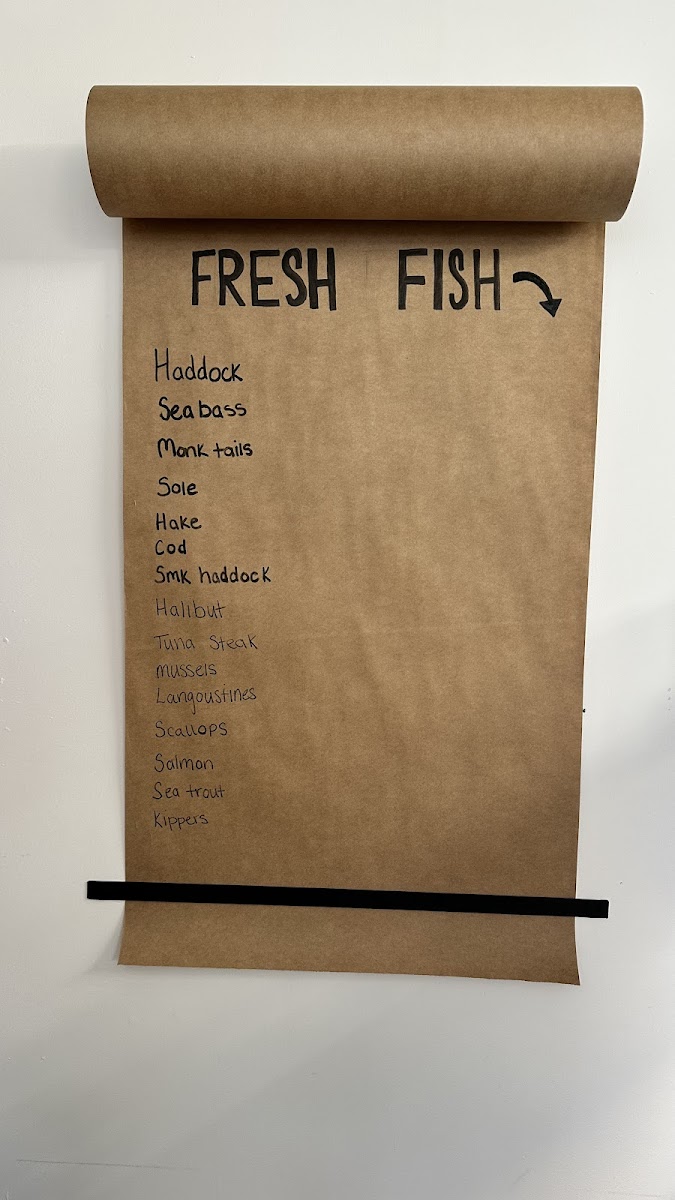 FRESH FISH
Haddock
Seabass
Monk tails
Sole
Hake
Cod
Smk haddock
Halibut
Tuna Steak
mussels
Langoustines
Scallops
Salmon
Sea trout
Kippers